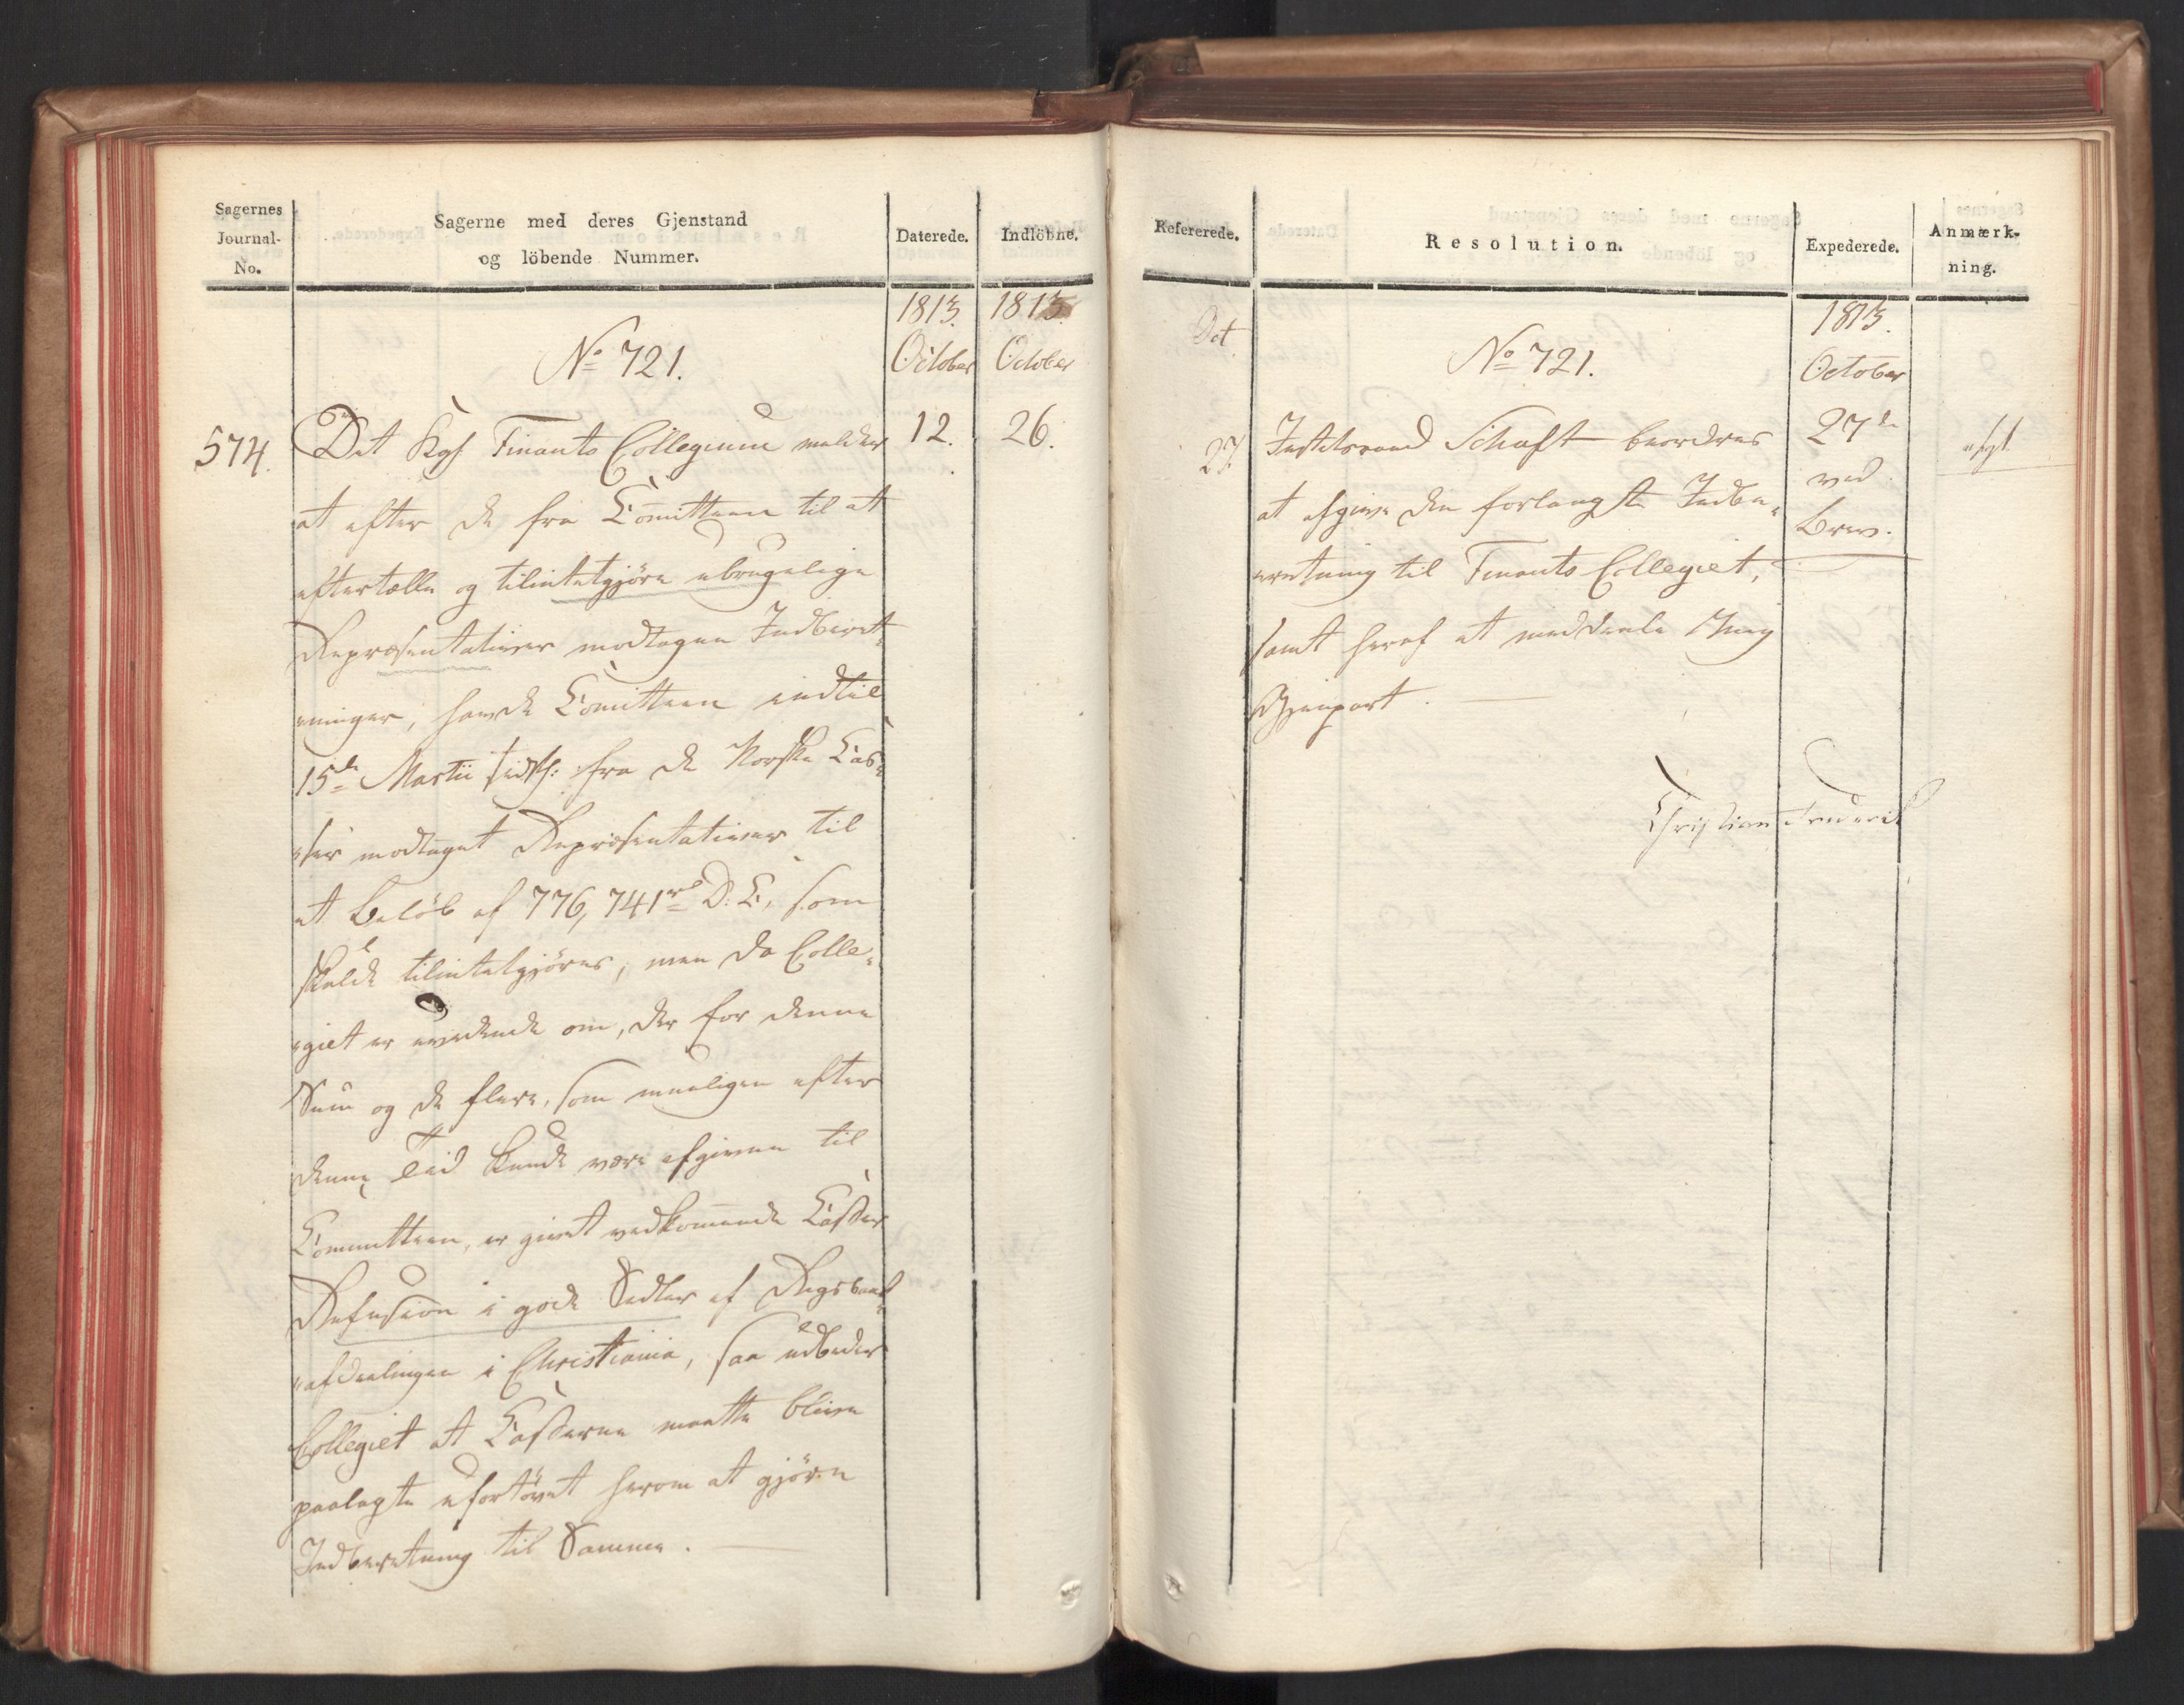 Sagernes
Journal-
No.
Sagerne med deres Gjenstand
og löbende Nummer.
Daterede.
Indlöbne.
1813.
October
1813.
October
No 721.
574.
12.
26.
Det Kgl Finants Collegium melder
at efter de fra Committeen til at
eftertælle og tilintetgjöre ubrugelige
Repræsentativer modtagne Indberet-
ninger, havde Comitteen indtil
15de Martii sidstl: fra de Norske Cas-
ser modtaget Repræsentativer til
et Belöb af 776,741 rd D: C, som
skulde tilintetgjöres, men da Colle-
giet er uvidende om, der for denne
Sum og de flere, som mueligen efter
denne Tid kunde være afgivne til
Committeen, er givet vedkommende Casser
Refusion i gode Sedler af Rigsbank-
afdeelingen i Christiania, saa udbeder
Collegiet at Casserne maatte blive
paalagte ufortövet herom at gjöre
Indberetning til Samme.
Refererede.
Resolution.
Expederede.
Anmærk-
ning.
Oct.
27.
No 721.
1813.
October
27de
ved
Brev.
Justitsraad Schaft beordres
at afgive den forlangte Indbe-
retning til Finants Collegiet,
samt heraf at meddeele Mig
Gjenpart.
Christian Frederik